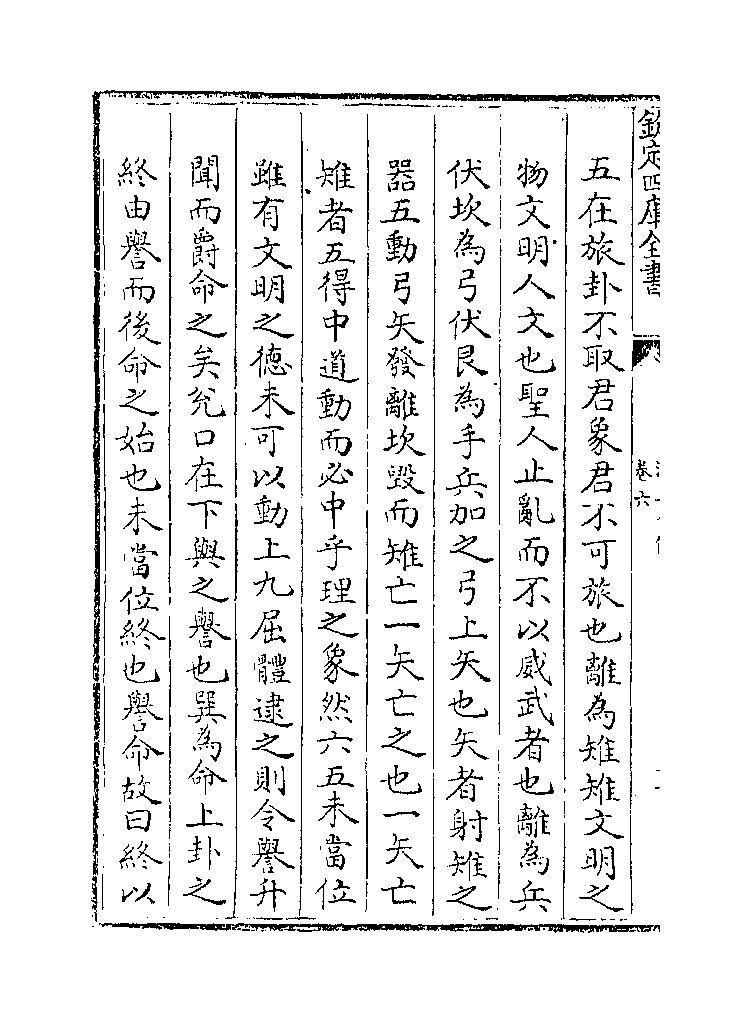 欽定四庫全書
卷六
五在旅卦不取君象君不可旅也離為雉雉文明之
物文明人文也聖人止亂而不以威武者也離為兵
伏坎為弓伏艮為手兵加之弓上矢也矢者射雉之
器五動弓矢發離坎毀而雉亡一矢亡之也一矢亡
雉者五得中道動而必中乎理之象然六五未當位
雖有文明之德未可以動上九屈體逮之則令譽升
聞而爵命之矣兊口在下與之譽也巽為命上卦之
終由譽而後命之始也未當位終也譽命故曰終以